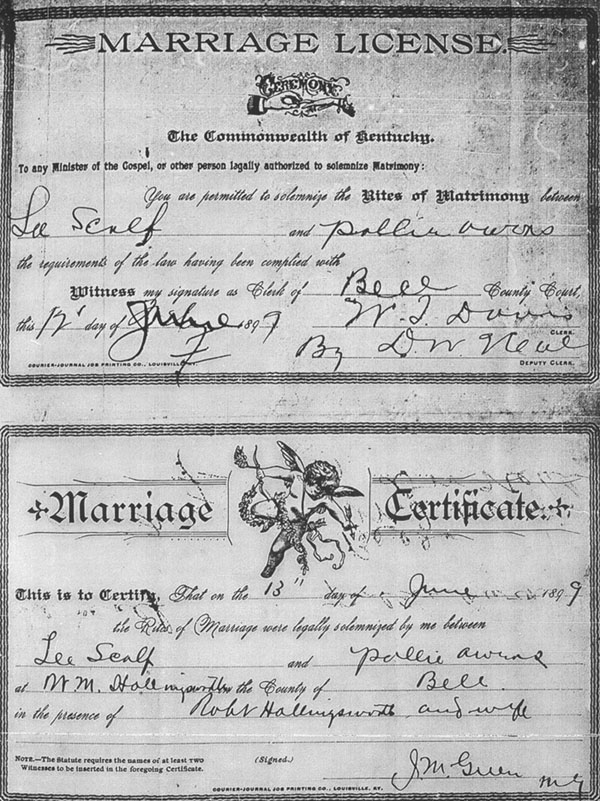 MARRIAGE LICENSE.
CEREMONY
The Commonwealth of Kentucky.
To any Minister of the Gospel, or other person legally authorized to solemnize Matrimony:
You are permitted to solemnize the Rites of Matrimony between
Lee Scalf and Pollie Owens
the requirements of the law having been complied with
Witness my signature as Clerk of Bell County Court,
this 12" day of June 1899 W. T. Davis
CLERK.
By D. W. Neal
COURIER-JOURNAL JOB PRINTING CO., LOUISVILLE, KY.
DEPUTY CLERK.
Marriage Certificate.
This is to Certify, That on the 13" day of June 1899
the Rites of Marriage were legally solemnized by me between
Lee Scalf and Pollie Owens
at W.M. Hollingsworth the County of Bell
in the presence of Robt Hollingsworth and wife
NOTE.—The Statute requires the names of at least TWO
Witnesses to be inserted in the foregoing Certificate.
(Signed.)
J.M. Green
COURIER-JOURNAL JOB PRINTING CO., LOUISVILLE, KY.